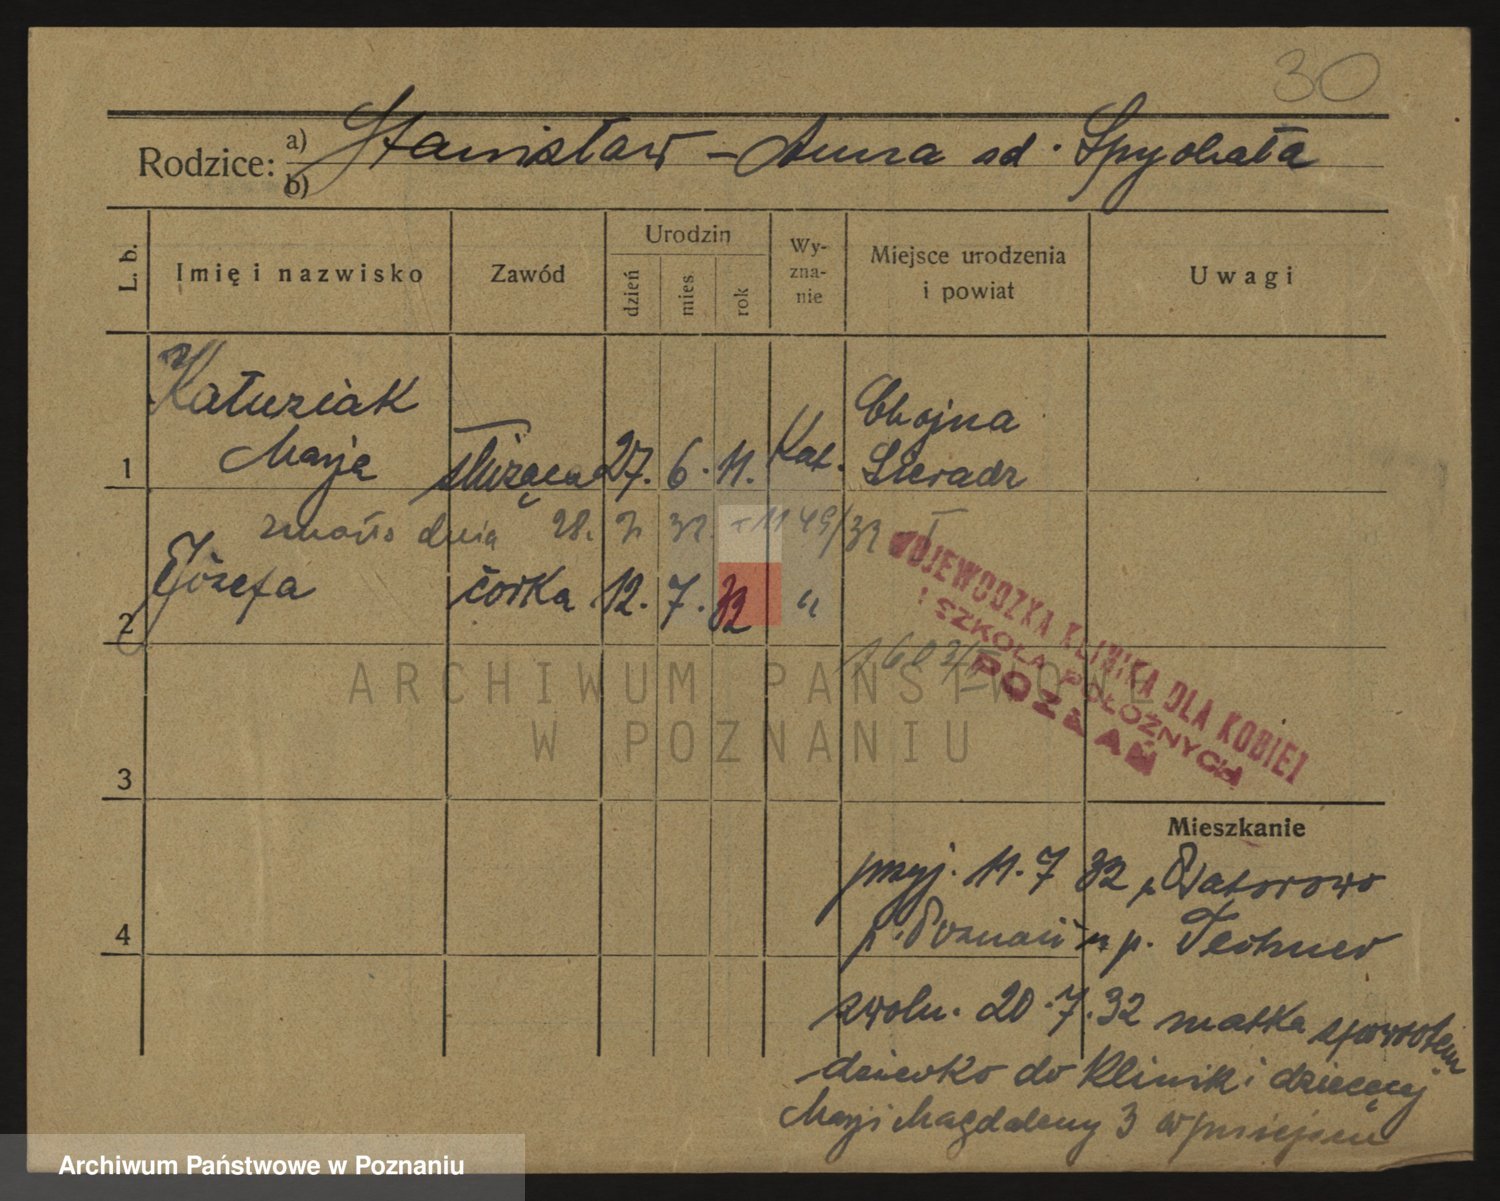 30
Rodzice: a) Stanisław – Anna sd. Spychała
b)
L. b. Imię i nazwisko Zawód Urodzin dzień mies rok Wy-zna-nie Miejsce urodzenia i powiat Uwagi
Kałuziak Chojna
1 Marja służąca 27. 6. 11. Kat. Sieradz
zmarło dnia 28. 7. 32. 1149/32
2 Józefa córka 12. 7. 32 "
WOJEWÓDZKA KLINIKA DLA KOBIET
I SZKOŁA POŁOŻNYCH
POZNAŃ
ARCHIWUM PAŃSTWOWE
W POZNANIU
3
Mieszkanie
przyj. 11. 7 32
4 p. Poznań p.
zwoln. 20. 7. 32 matka spowrotem
dziecko do kliniki dziecięcej
Marji Magdaleny 3
Archiwum Państwowe w Poznaniu